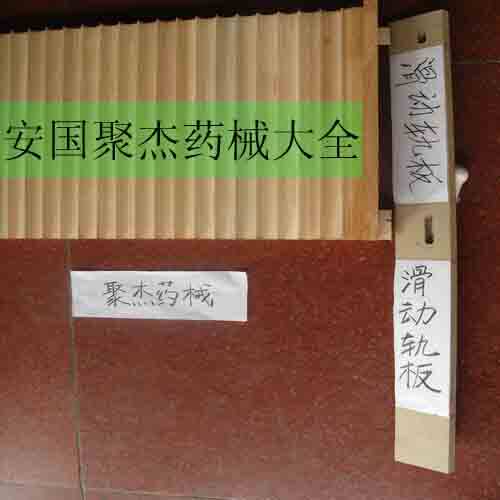 安国聚杰药械大全
滑动轨板
聚杰药械
滑动轨板